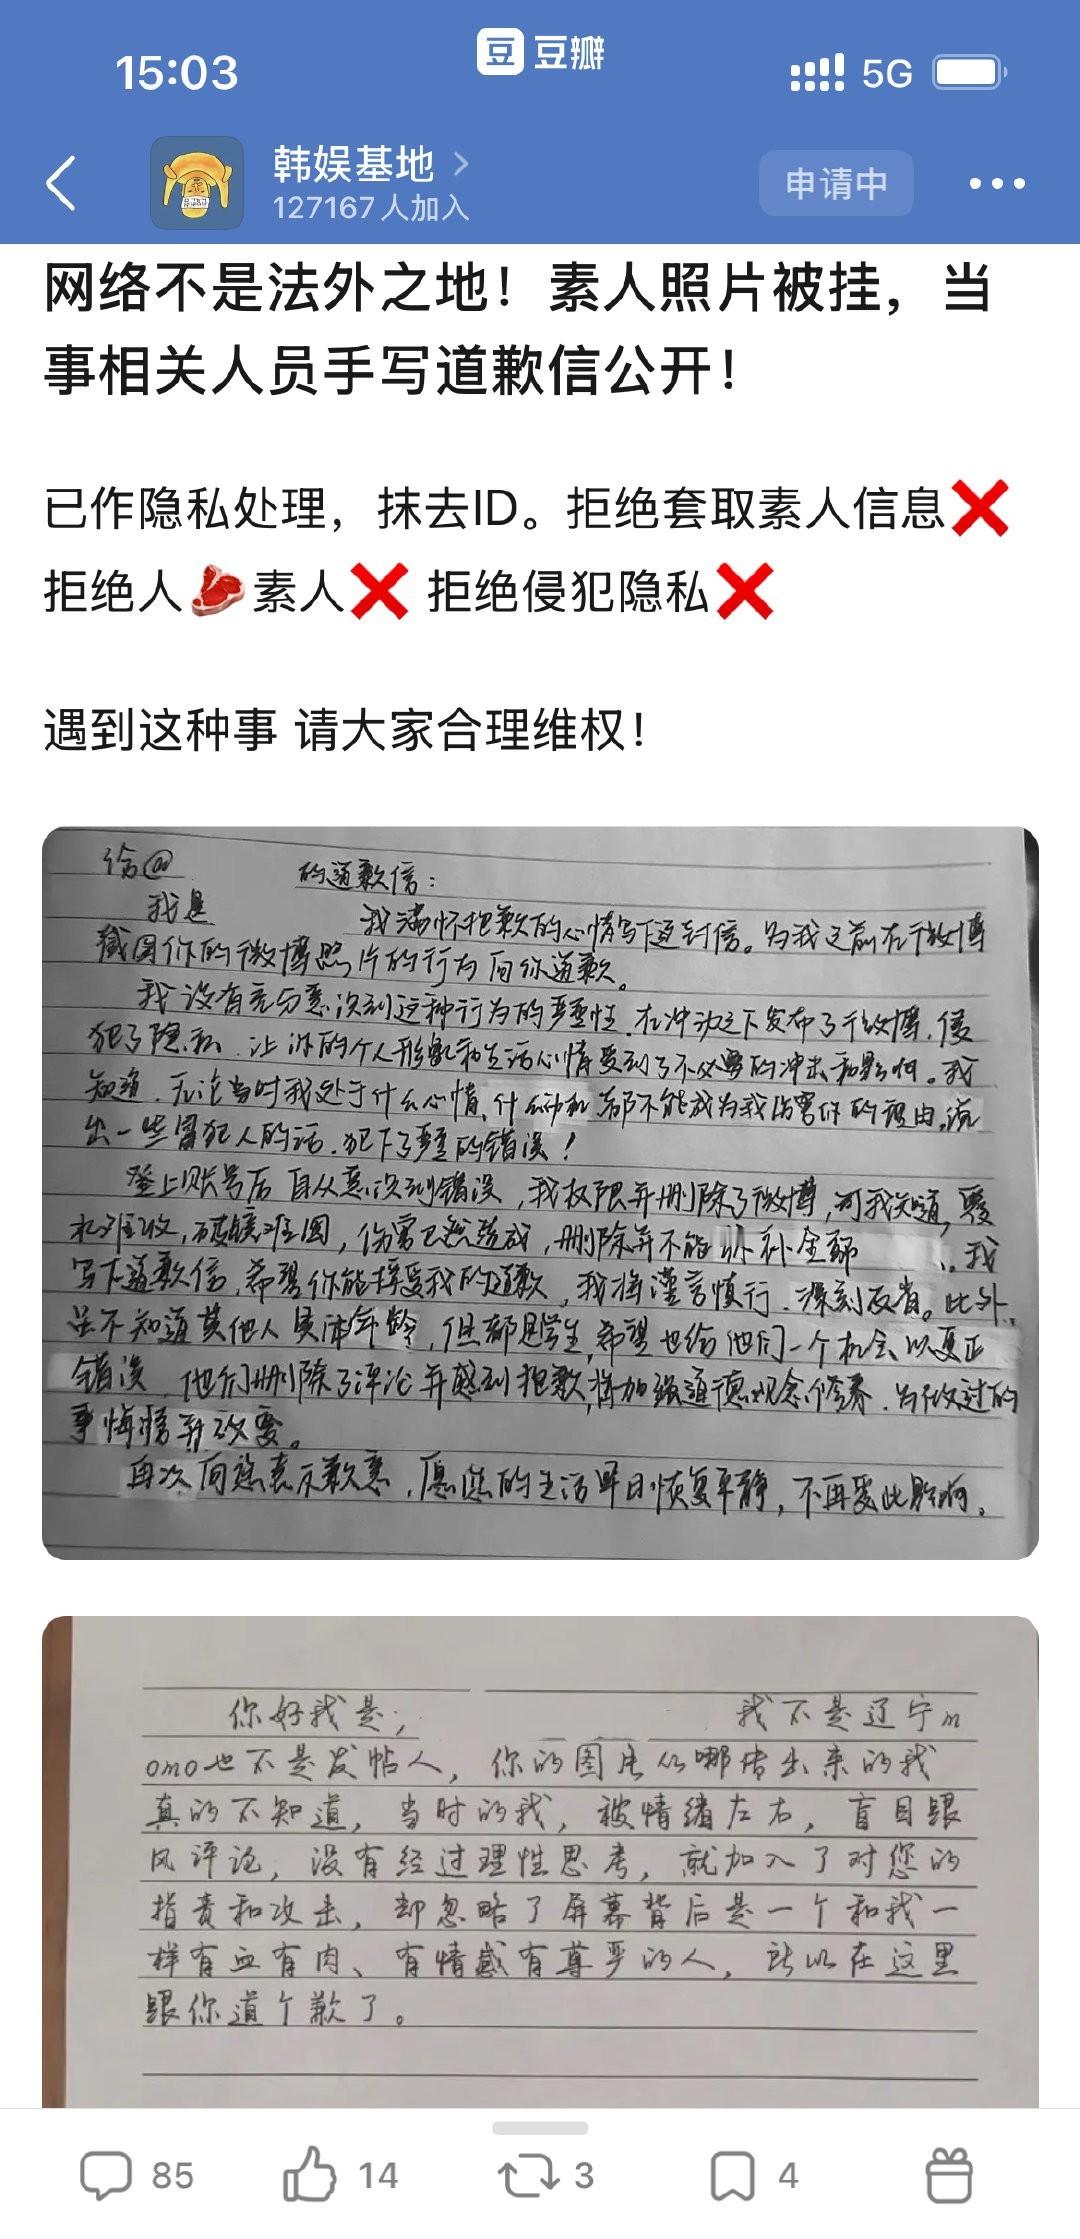 15:03
豆 豆瓣
5G
韩娱基地
127167人加入
申请中
网络不是法外之地！素人照片被挂，当
事相关人员手写道歉信公开！
已作隐私处理，抹去ID。拒绝套取素人信息❌
拒绝人🥩素人❌ 拒绝侵犯隐私❌
遇到这种事 请大家合理维权！
给@ 的道歉信：
我是 我满怀抱歉的心情写下这封信。为我之前在微博
截图你的微博照片的行为向你道歉。
我没有充分意识到这种行为的严重性，在冲动之下发布了微博，侵
犯了隐私，让你的个人形象和生活心情受到了不必要的冲击和影响。我
知道，无论当时我处于什么心情、什么动机都不能成为我伤害你的理由，说
出一些冒犯人的话，犯下了严重的错误！
登上账号后 自从意识到错误，我权限并删除了微博，可我知道，覆
水难收，破镜难圆，伤害已然造成，删除并不能 弥补全部 我
写下道歉信，希望你能接受我的道歉，我将谨言慎行，深刻反省。此外，
虽不知道其他人具体年龄，但都是学生，希望也给他们一个机会以更正
错误，他们删除了评论并感到抱歉，将加强道德观念修养，为做过的
事悔悟并改变。
再次向您表示歉意，愿您的生活早日恢复平静，不再受此影响。
你好我是； 我不是辽宁m
omo也不是发帖人，你的图片从哪传出来的我
真的不知道，当时的我，被情绪左右，盲目跟
风评论，没有经过理性思考，就加入了对您的
指责和攻击，却忽略了屏幕背后是一个和我一
样有血有肉、有情感有尊严的人，所以在这里
跟你道个歉了。
85
14
3
4